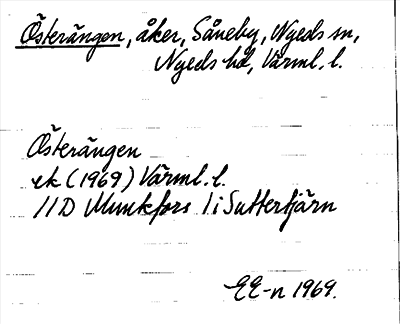 Österängen, åker, Såneby, Nyeds sn,
Nyeds hd, Värml. l.
Österängen
ek (1969) Värml. l.
11D Munkfors 1 i Suttertjärn
EE-n 1969.